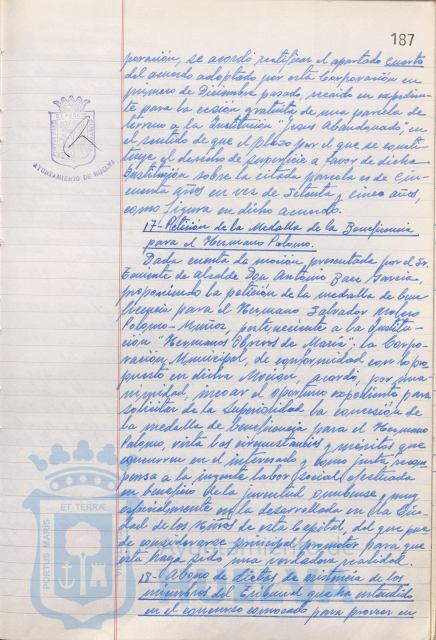 187
poración, se acordó rectificar el apartado cuarto
del acuerdo adoptado por esta Corporación en
primero de Diciembre pasado, recaido en expedien-
te para la cesión gratuita de una parcela de
terreno a la Institución "Jesus Abandonado, en
el sentido de que el plazo por el que se consti-
tuye el derecho de superficie a favor de dicha
Institución sobre la citada parcela es de Cin-
cuenta años en vez de Setenta y cinco años,
como figura en dicho acuerdo.
17- Petición de la Medalla de la Beneficencia
para el Hermano Palomo.
Dada cuenta de moción presentada por el Sr.
Teniente de Alcalde Don Antonio Baez Garcia,
proponiendo la petición de la medalla de bene
ficencia para el Hermano Salvador
Palomo-Muñoz, perteneciente a la Institu-
ción "Hermanos Obreros de Maria"; la Corpo-
ración Municipal, de conformidad con lo pro
puesto en dicha Moción, acordó, por una-
nimidad, incoar el oportuno expediente para
solicitar de la Superioridad la concesión de
la medalla de beneficencia para el Hermano
Palomo, vista las circunstancias y méritos que
concurren en el interesado y como justa recom
pensa a la ingente labor social efectuada
en beneficio de la juventud onubense y muy
especialmente en la desarrollada en la Ciu-
dad de los Niños de esta Capital, del que pue
de considerarse principal promotor para que
esta haya sido una verdadera realidad.
18- Abono de dietas de asistencia de los
miembros del Tribunal que ha entendido
en el concurso convocado para proveer en
AYUNTAMIENTO DE HUELVA
PORTUS MARIS
ET TERRÆ
Ayuntamiento de